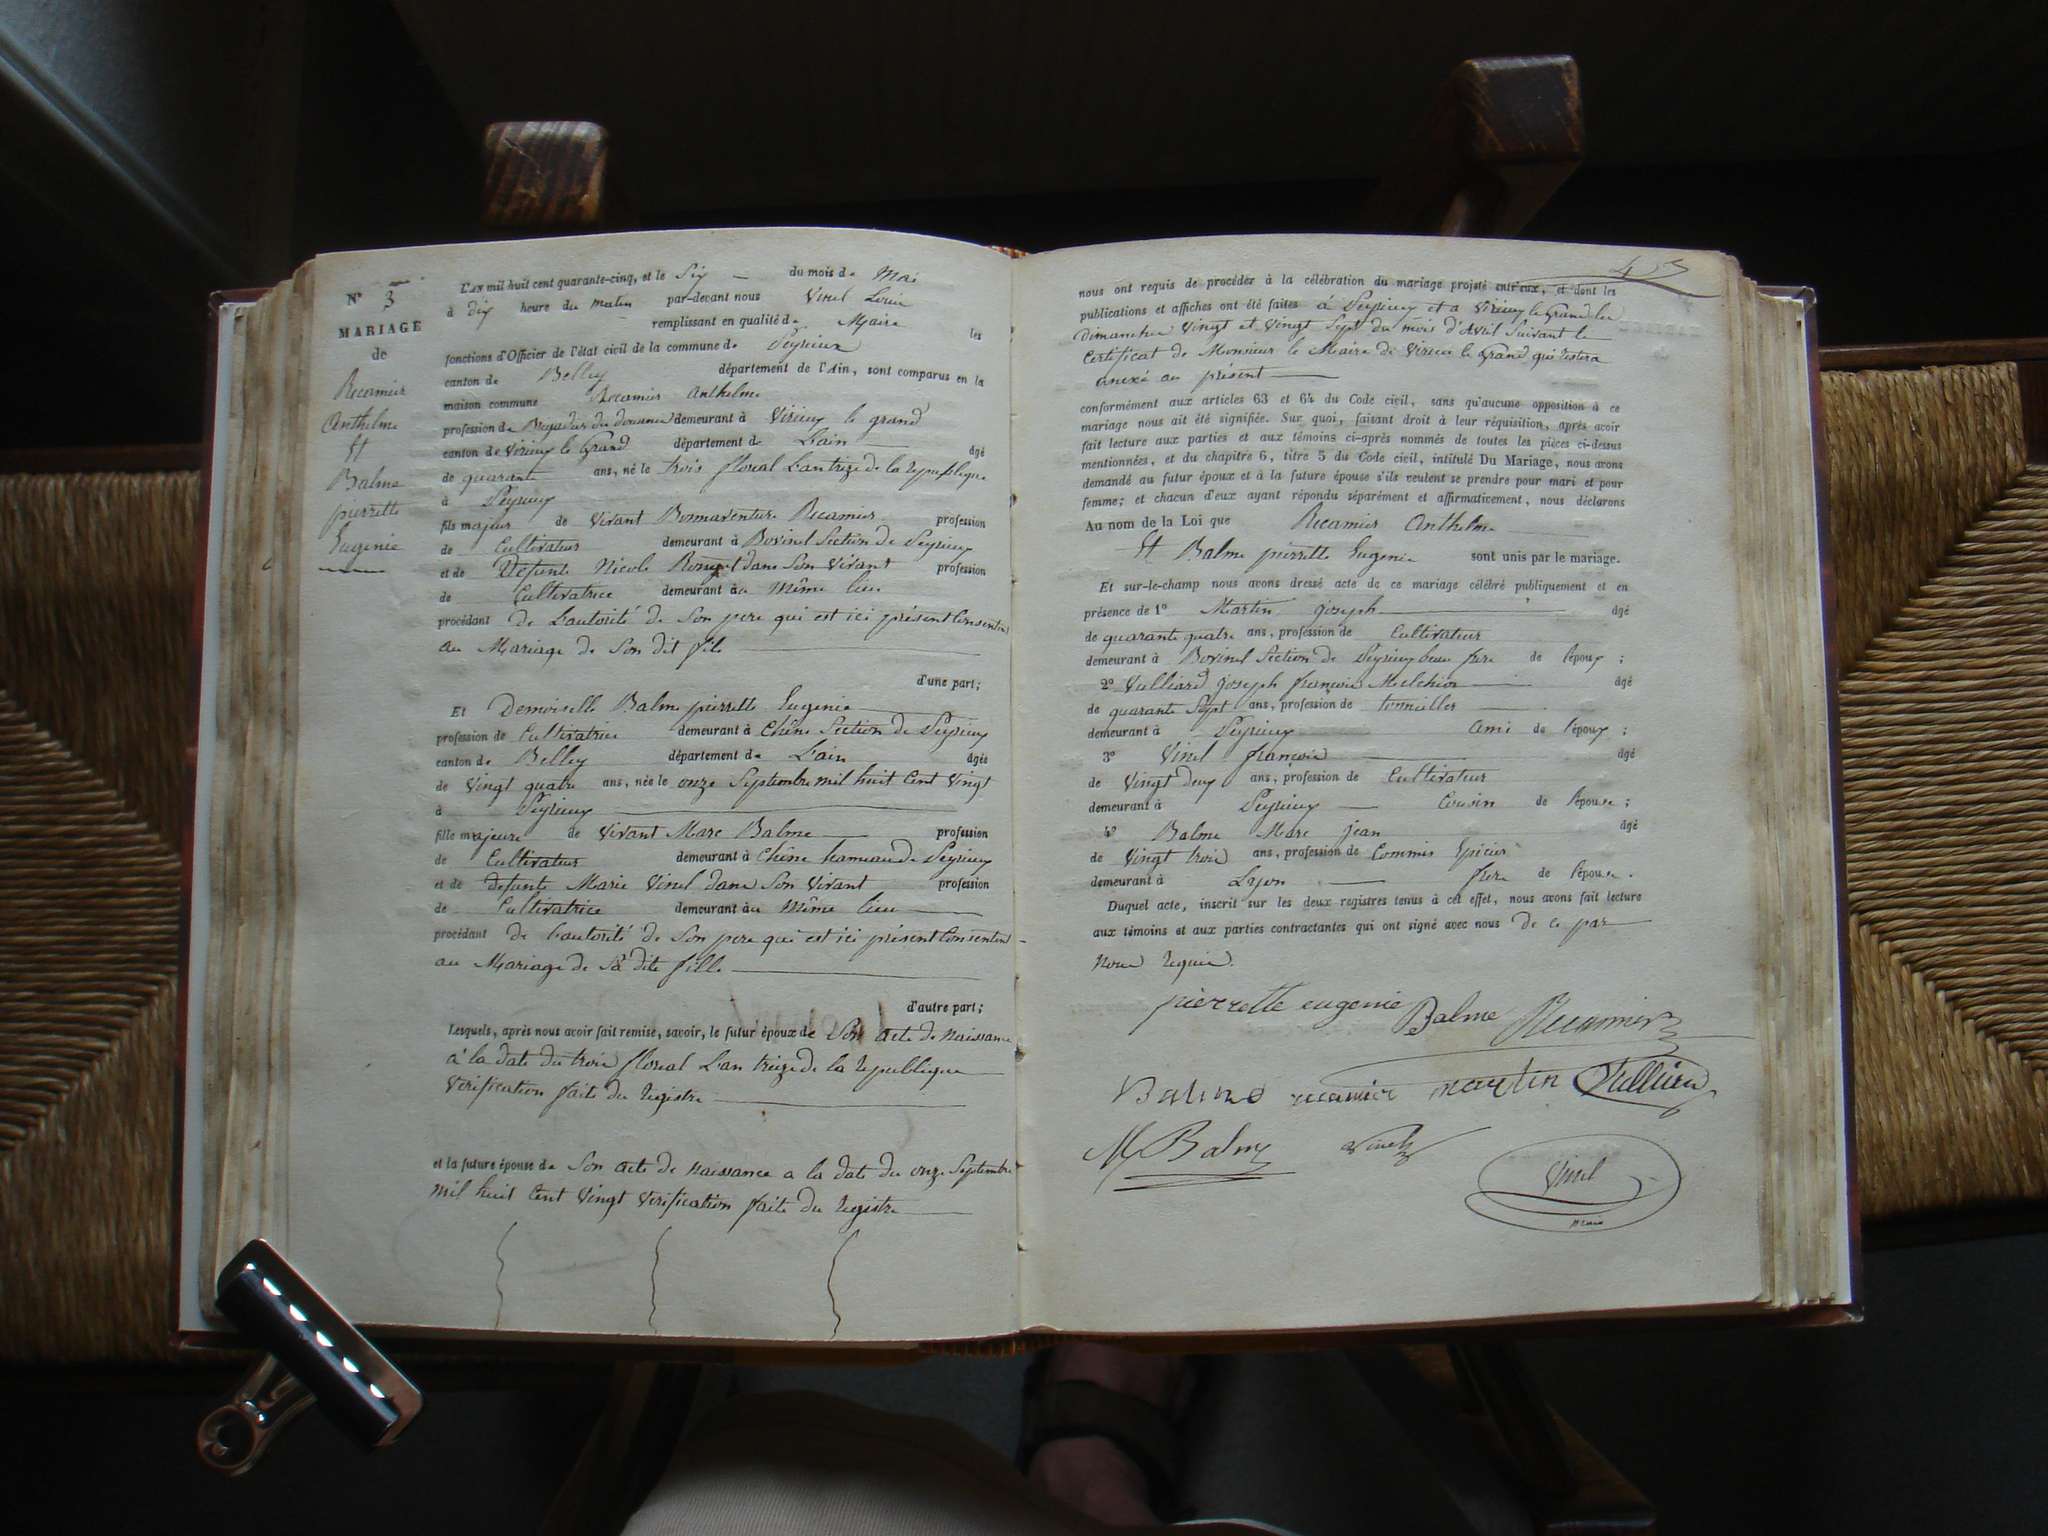 N° 3
MARIAGE
de
Recamier
Anthelme
Et
Balme
pierrette
Eugenie
L'AN mil huit cent quarante-cinq, et le Six du mois de Mai
à dix heure du matin par-devant nous Vinel Louis
remplissant en qualité de Maire les
fonctions d'Officier de l'état civil de la commune de Peyrieux
canton de Belley département de l'Ain, sont comparus en la
maison commune Recamier Anthelme
profession de Brigadier des douanes demeurant à Virieux le grand
canton de Virieux le Grand département de L'ain âgé
de quarante ans, né le trois floréal L'an treize de la republique
à Peyrieux
fils majeur de Vivant Bonnaventure Recamier profession
de Cultivateur demeurant à Bovinel Section de Peyrieux
et de Defunte Nicole dans Son Vivant profession
de Cultivatrice demeurant au Même lieu
procédant de L'autorité de Son pere qui est ici présent Consentant
au Mariage de Son dit fils
d'une part;
Et Demoiselle Balme pierrette Eugenie
profession de Cultivatrice demeurant à Chêne Section de Peyrieux
canton de Belley département de L'ain âgée
de Vingt quatre ans, née le onze Septembre mil huit Cent Vingt
à Peyrieux
fille majeure de Vivant Marc Balme profession
de Cultivateur demeurant à Chêne hameau de Peyrieux
et de defunte Marie Vinel dans Son Vivant profession
de Cultivatrice demeurant au Même lieu
procédant de L'autorité de Son pere qui est ici présent Consentant
au Mariage de Sa dite fille
d'autre part;
Lesquels, après nous avoir fait remise, savoir, le futur époux de Son acte de Naissance
à la date du trois floréal L'an treize de la republique
Vérification faite du Registre
et la future épouse de Son acte de naissance a la date du onze Septembre
mil huit Cent Vingt Vérification faite du Registre
43
nous ont requis de procéder à la célébration du mariage projeté entr'eux, et dont les
publications et affiches ont été faites à Peyrieux et a Virieux le Grand les
Dimanches Vingt et Vingt Sept du mois d'Avril Suivant le
Certificat de Monsieur le Maire de Virieux le Grand qui restera
anexé au présent
conformément aux articles 63 et 64 du Code civil, sans qu'aucune opposition à ce
mariage nous ait été signifiée. Sur quoi, faisant droit à leur réquisition, après avoir
fait lecture aux parties et aux témoins ci-après nommés de toutes les pièces ci-dessus
mentionnées, et du chapitre 6, titre 5 du Code civil, intitulé Du Mariage, nous avons
demandé au futur époux et à la future épouse s'ils veulent se prendre pour mari et pour
femme; et chacun d'eux ayant répondu séparément et affirmativement, nous déclarons
Au nom de la Loi que Recamier Anthelme
Et Balme pierrette Eugenie sont unis par le mariage.
Et sur-le-champ nous avons dressé acte de ce mariage célébré publiquement et en
présence de 1° Martin joseph âgé
de quarante quatre ans, profession de Cultivateur
demeurant à Bovinel Section de Peyrieux beau frere de l'époux;
2° Vulliard joseph françois Melchior âgé
de quarante Sept ans, profession de tonnellier
demeurant à Peyrieux Ami de l'époux;
3° Vinel françois âgé
de Vingt deux ans, profession de Cultivateur
demeurant à Peyrieux Cousin de l'épouse;
4° Balme Marc jean âgé
de Vingt trois ans, profession de Commis Epicier
demeurant à Lyon frere de l'épouse.
Duquel acte, inscrit sur les deux registres tenus à cet effet, nous avons fait lecture
aux témoins et aux parties contractantes qui ont signé avec nous de ce par
Nous requis.
pierrette eugenie Balme Recamier
Balme recamier martin Vulliard
M Balme Vinel Vinel
maire